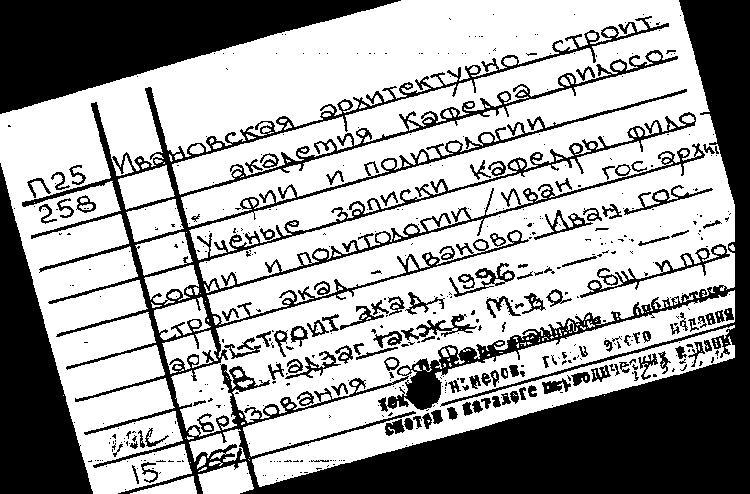 Ивановская архитектурно-строит.
академия. Кафедра филосо-
П25
258
фии и политологии.
Ученые записки кафедры фило-
софии и политологии / Иван. гос. архит
строит. акад. - Иваново: Иван. гос.
архит.-строит. акад., 1996-
В надзаг. также: М-во общ. и проф
образования Рос. Федерации
в библиотеке
номеров, год в этого издания
смотри в каталоге периодических изданий
15